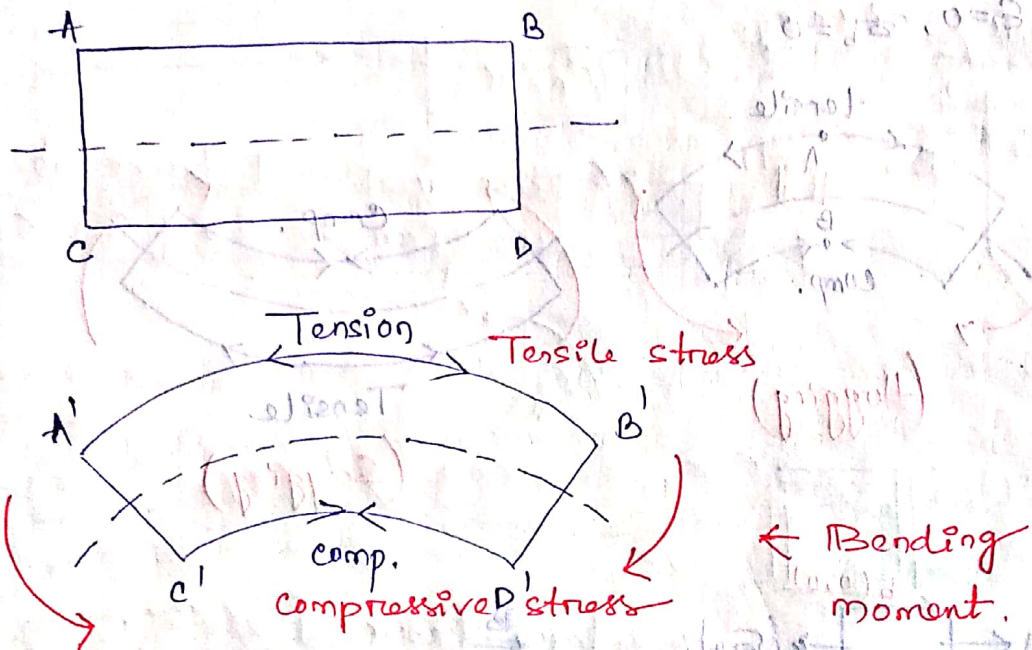 A B
C D
Tension
Tensile stress
A' B'
comp.
C' D'
compressive stress
← Bending
moment.